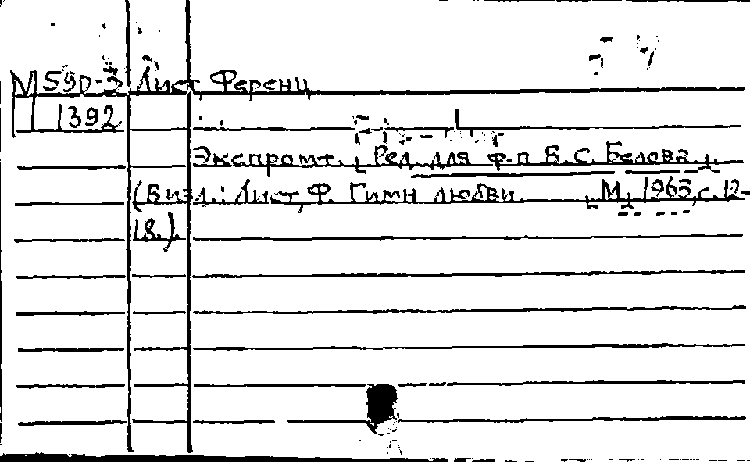 М 590-3 Лист, Ференц
1392
Экспромт. [Ред. для ф-п В.С. Белова.]
(В изд.: Лист, Ф. Гимн любви. [М.], 1963, с. 12-
18.).